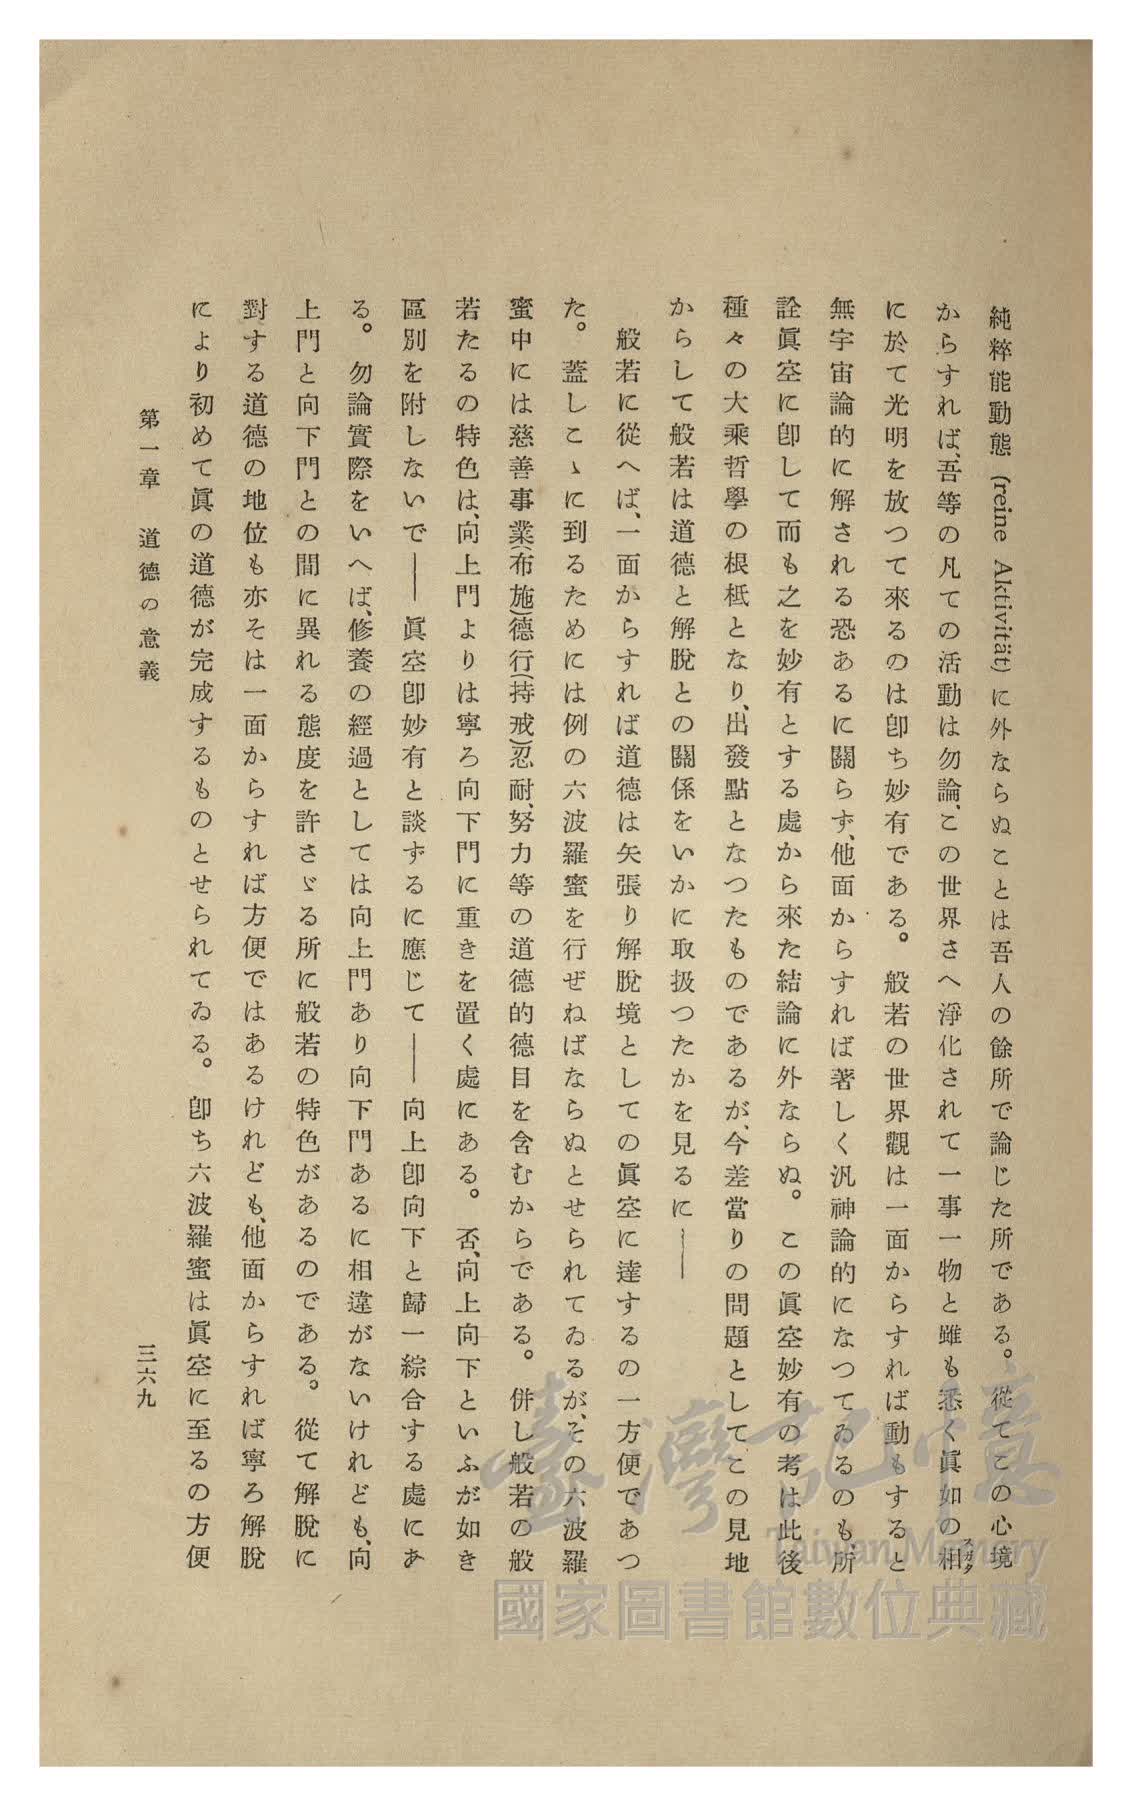 純粹能動態 (reine Aktivität) に外ならぬことは吾人の餘所で論じた所である。從てこの心境
からすれば、吾等の凡ての活動は勿論、この世界さへ淨化されて一事一物と雖も悉く眞如の相スガタ
に於て光明を放つて來るのは卽ち妙有である。般若の世界觀は一面からすれば動もすると
無宇宙論的に解される恐あるに關らず、他面からすれば著しく汎神論的になつてゐるのも、所
詮眞空に卽して而も之を妙有とする處から來た結論に外ならぬ。この眞空妙有の考は此後
種々の大乘哲學の根柢となり、出發點となつたものであるが、今差當りの問題としてこの見地
からして般若は道德と解脫との關係をいかに取扱つたかを見るに――
般若に從へば、一面からすれば道德は矢張り解脫境としての眞空に達するの一方便であつ
た。蓋しこゝに到るためには例の六波羅蜜を行ぜねばならぬとせられてゐるが、その六波羅
蜜中には慈善事業(布施)德行(持戒)忍耐、努力等の道德的德目を含むからである。併し般若の般
若たるの特色は、向上門よりは寧ろ向下門に重きを置く處にある。否、向上向下といふが如き
區別を附しないで――眞空卽妙有と談ずるに應じて――向上卽向下と歸一綜合する處にあ
る。勿論實際をいへば、修養の經過としては向上門あり向下門あるに相違がないけれども、向
上門と向下門との間に異れる態度を許さゞる所に般若の特色があるのである。從て解脫に
對する道德の地位も亦そは一面からすれば方便ではあるけれども、他面からすれば寧ろ解脫
により初めて眞の道德が完成するものとせられてゐる。卽ち六波羅蜜は眞空に至るの方便
第一章 道德の意義
三六九
臺灣記憶
Taiwan Memory
國家圖書館數位典藏